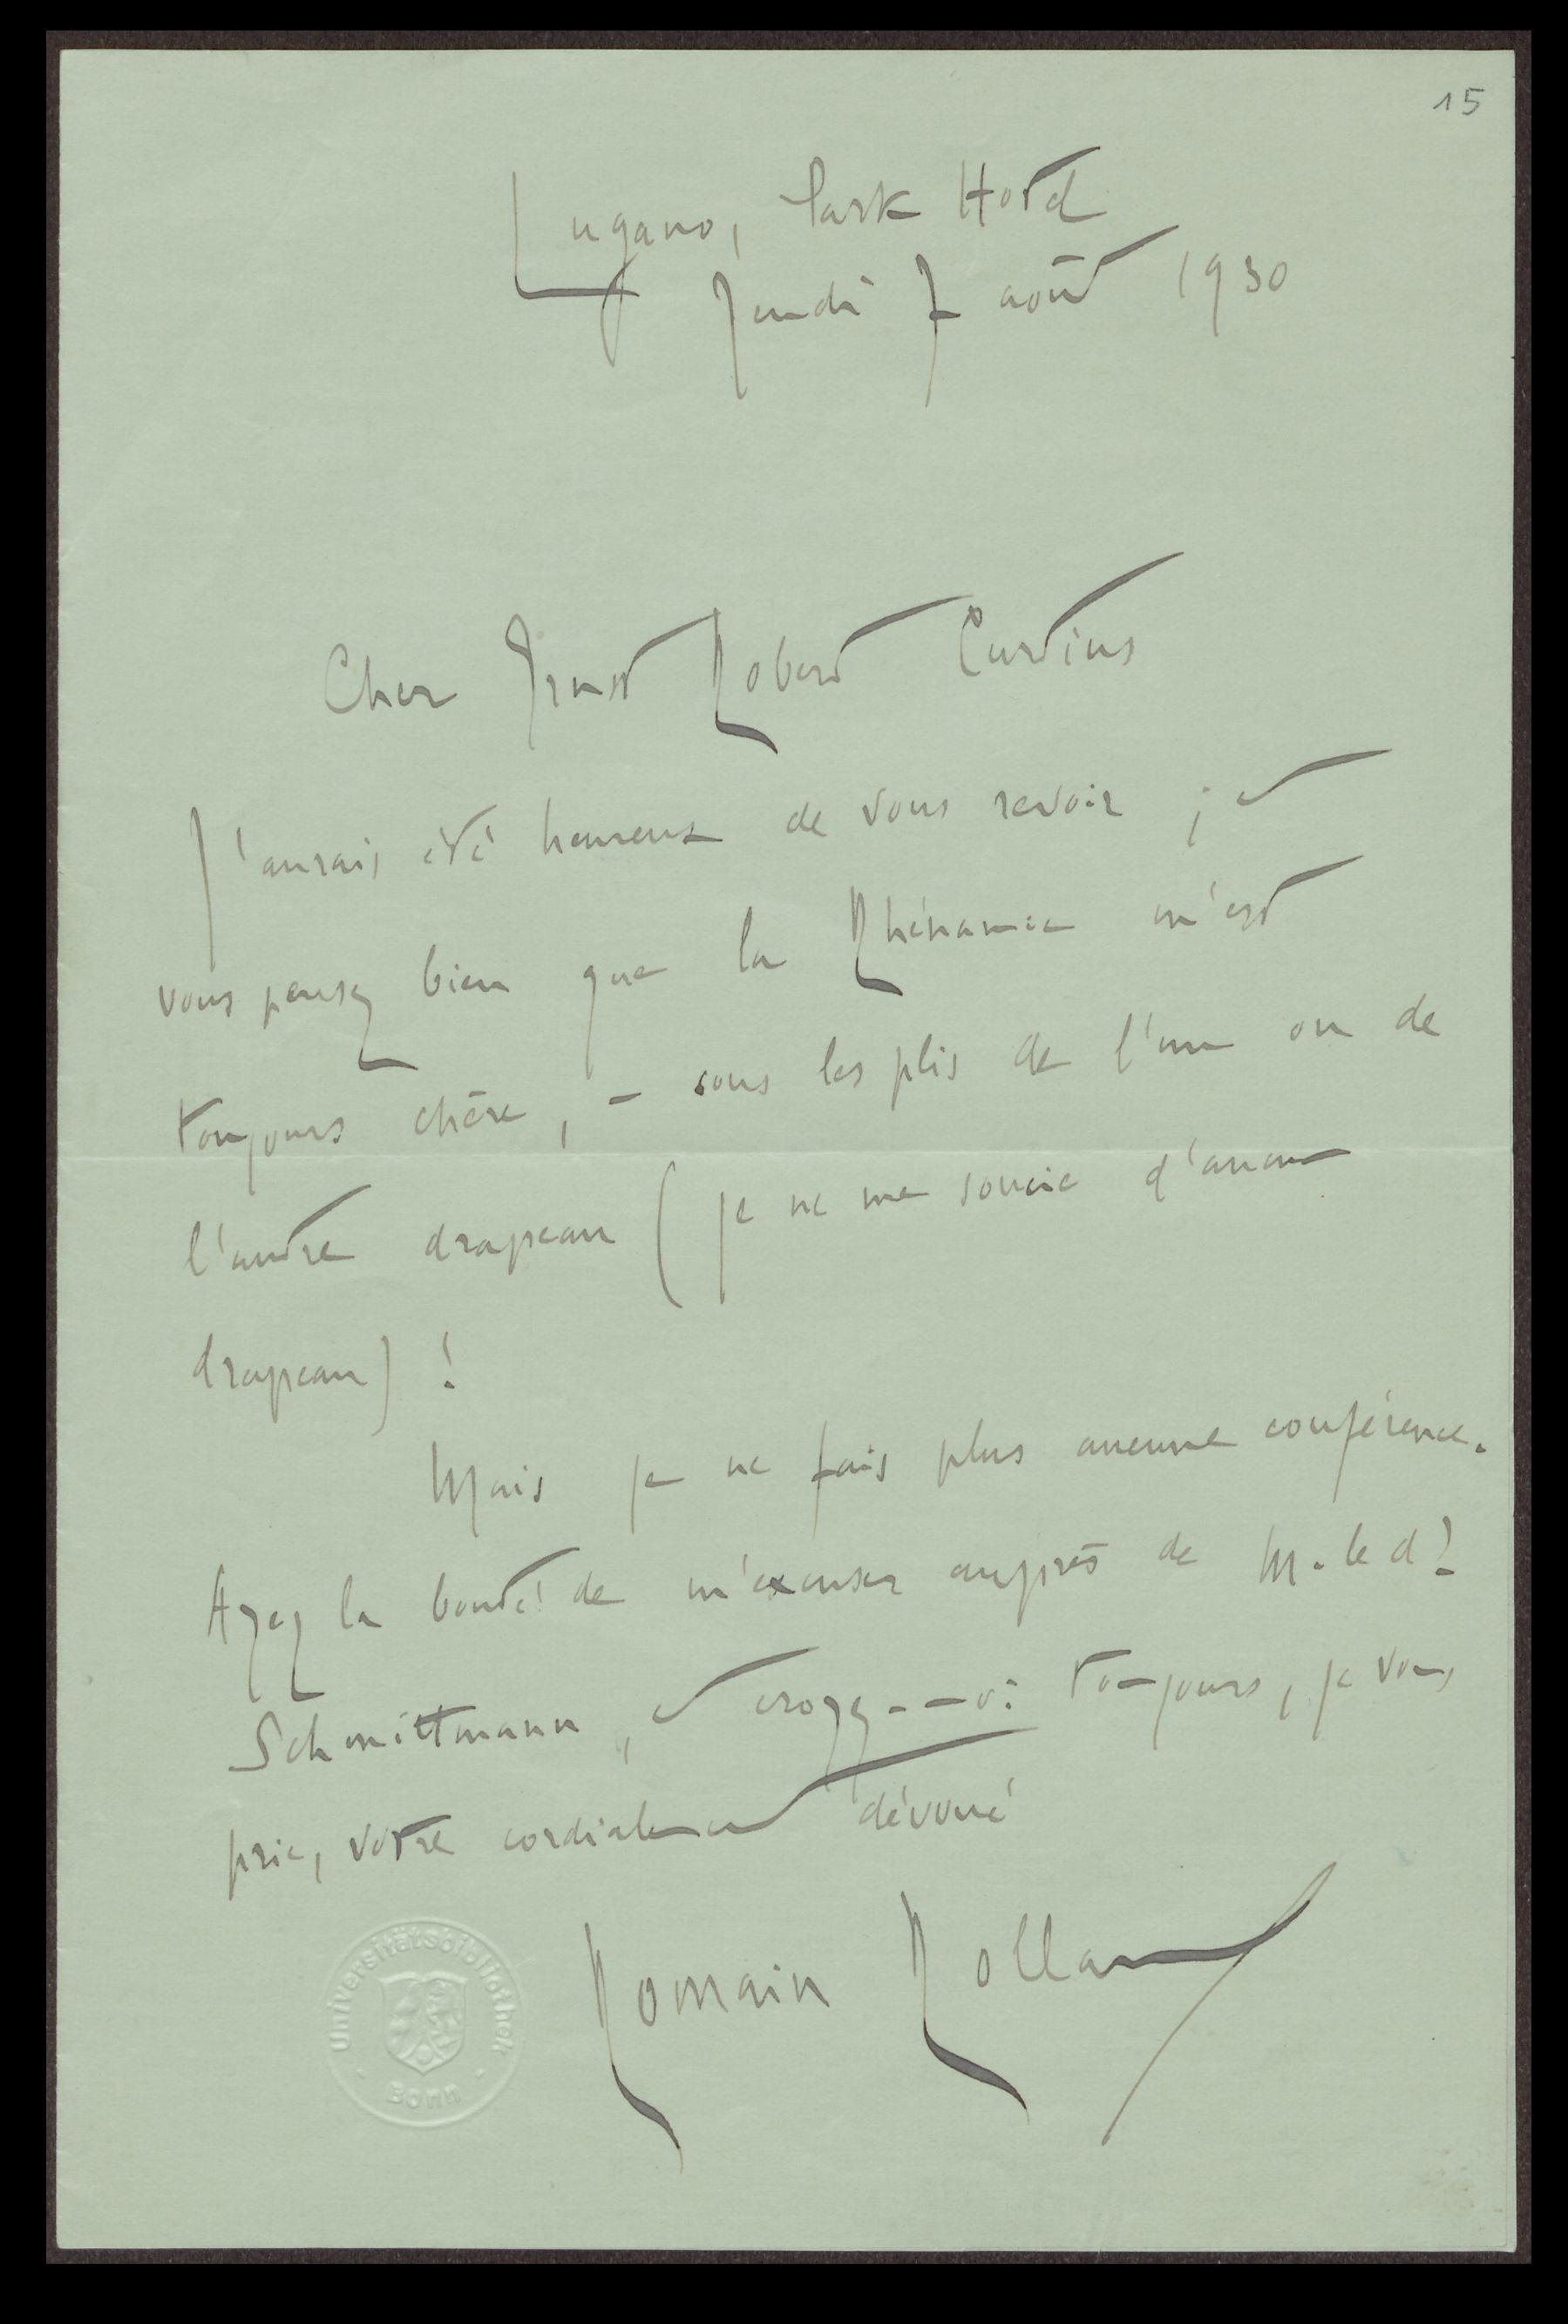 15
Lugano, Park Hotel
Jeudi 7 août 1930
Cher Ernst Robert Curtius
J'aurais été heureux de vous revoir ; et
vous pensez bien que la Rhénanie m'est
toujours chère, – sous les plis de l'un ou de
l'autre drapeau (je ne me soucie d'aucun
drapeau) !
Mais je ne fais plus aucune conférence.
Ayez la bonté de m'excuser auprès de M. le dr
Schmittmann, et croyez-moi toujours, je vous
prie, votre cordialement dévoué
Romain Rolland
Universitätsbibliothek
Bonn